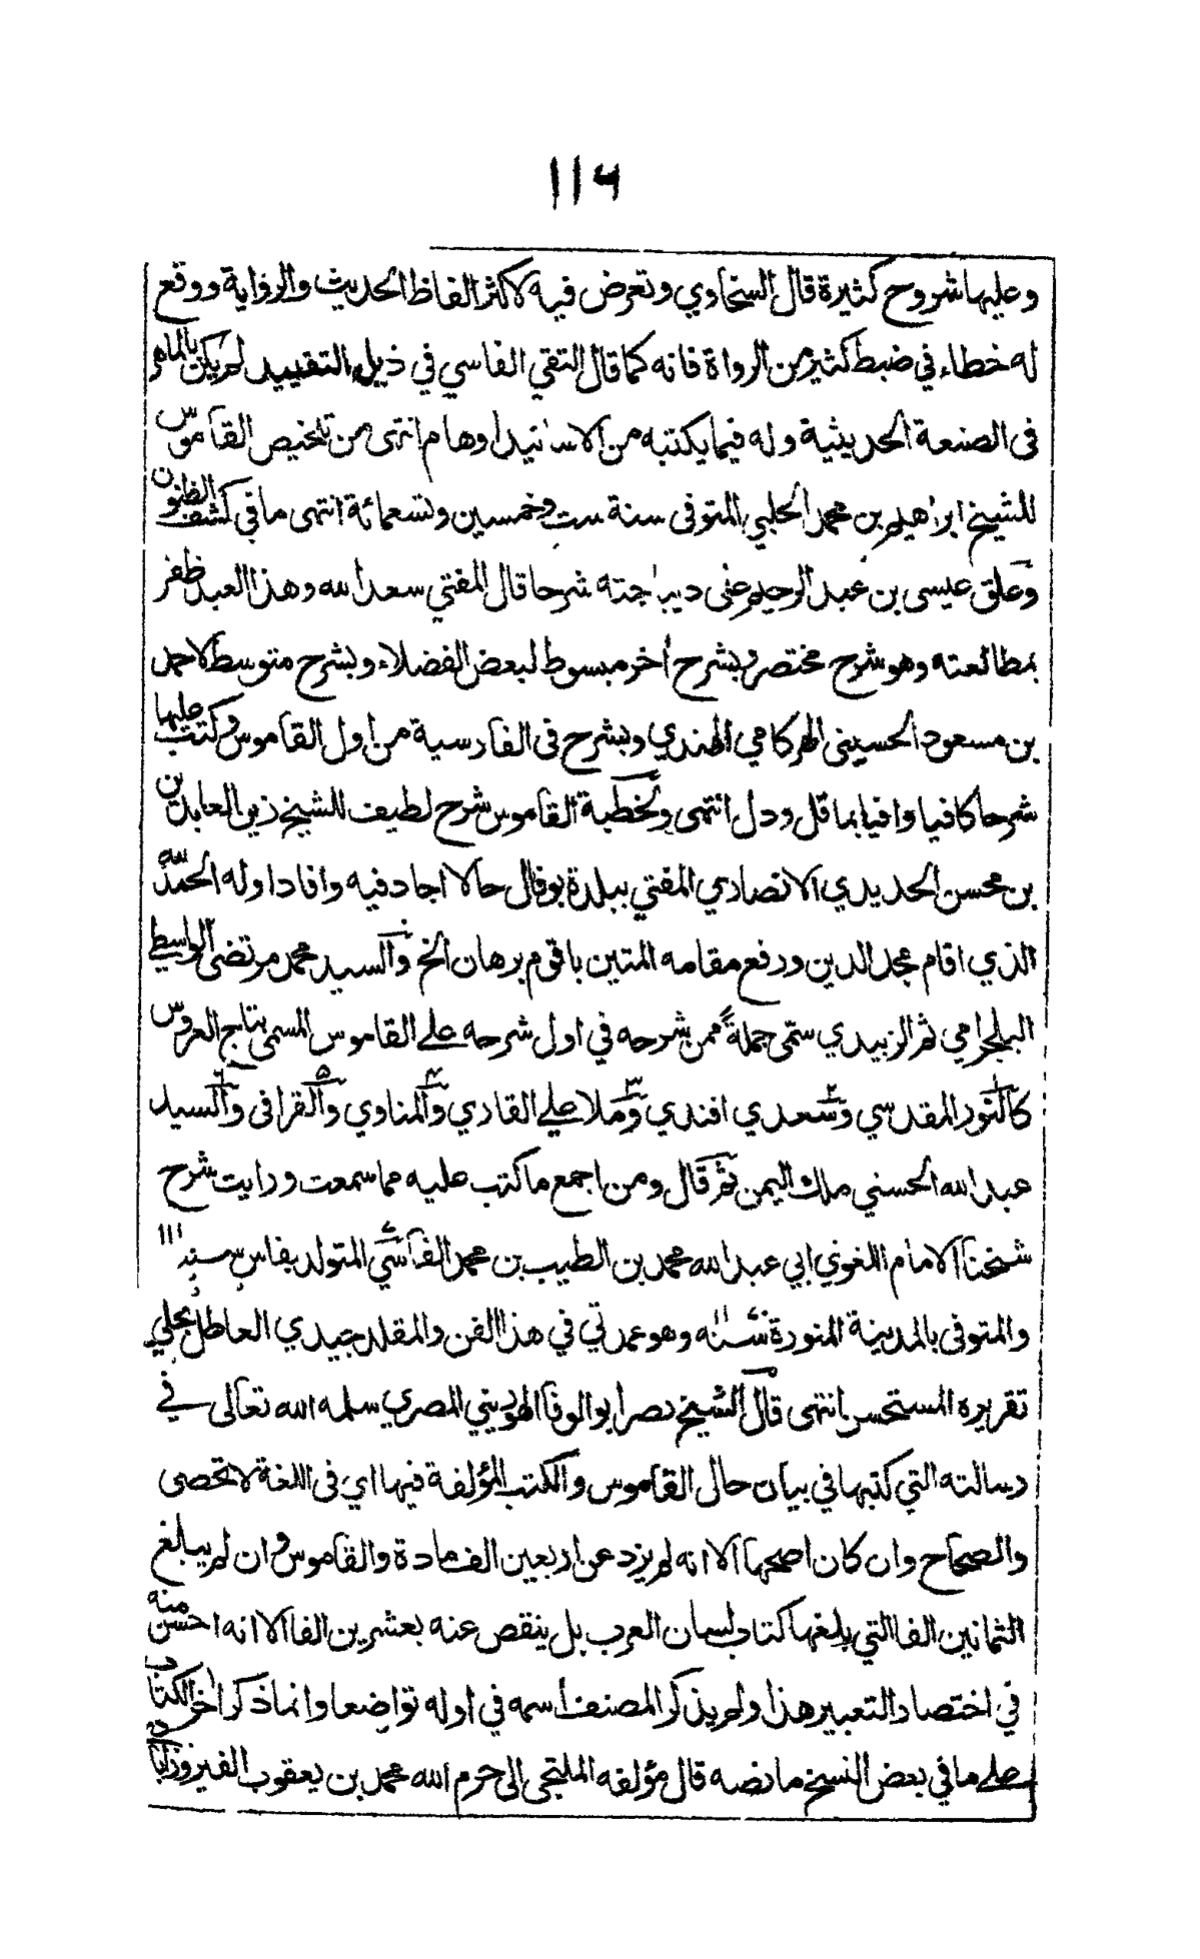 ١١٦
وعليها شروح كثيرة قال السخاوي وتعرض فيه لاكثر الفاظ الحديث والرواية ووقع
له خطاء في ضبط كثير من الرواة فانه كما قال التقي الفاسي في ذيل التقييد لم يكن بالماهر
فى الصنعة الحديثية وله فيما يكتبه من الاسانيد اوهام انتهى من تلخيص القاموس
للشيخ ابراهيم بن محمد الحلبي المتوفى سنة ست وخمسين وتسعمائة انتهى ما في كشف الظنون
وعلق عيسى بن عبد الرحيم على ديباجته شرحا قال المفتي سعد الله وهذا العبد ظفر
بمطالعته وهو شرح مختصر وبشرح اخر مبسوط لبعض الفضلاء وبشرح متوسط لاحمد
بن مسعود الحسينى الهركامي الهندي وبشرح فى الفارسية من اول القاموس وكتب عليها
شرحا كافيا وافيا بما قل ودل انتهى ولخطبة القاموس شرح لطيف للشيخ زين العابدين
بن محسن الحديدي الانصاري المفتي ببلدة بوفال حالا اجاد فيه وافاد اوله الحمد لله
الذي اقام مجد الدين ورفع مقامه المتين باقوم برهان الخ والسيد محمد مرتضى الواسطي
البلجرامي ثم الزبيدي سمّى جملةً ممن شرحه في اول شرحه على القاموس المسمى بتاج العروس
كالنور المقدسي وسعدي افندي وملا علي القاري والمناوي والقرافى والسيد
عبد الله الحسني ملك اليمن ثم قال ومن اجمع ما كتب عليه مما سمعت ورايت شرح
شيخنا الامام اللغوي ابي عبد الله محمد بن الطيب بن محمد الفاسي المتولد بفاس سنة
والمتوفى بالمدينة المنورة وهو عمدتي في هذا الفن والمقلد جيدي العاطل بحلي
تقريره المستحسن انتهى قال الشيخ نصر ابو الوفا الهوريني المصري سلمه الله تعالى في
رسالته التي كتبها في بيان حال القاموس والكتب المؤلفة فيها اي فى اللغة لا تحصى
والصحاح وان كان اصحها الا انه لم يزد عن اربعين الف مادة والقاموس وان لم يبلغ
الثمانين الفا التي بلغها كتاب لسان العرب بل ينقص عنه بعشرين الفا الا انه احسن منه
في اختصار التعبير هذا ولم يذكر المصنف اسمه في اوله تواضعا وانما ذكر اخر الكتاب
على ما في بعض النسخ ما نصه قال مؤلفه الملتجى الى حرم الله محمد بن يعقوب الفيروزاباد